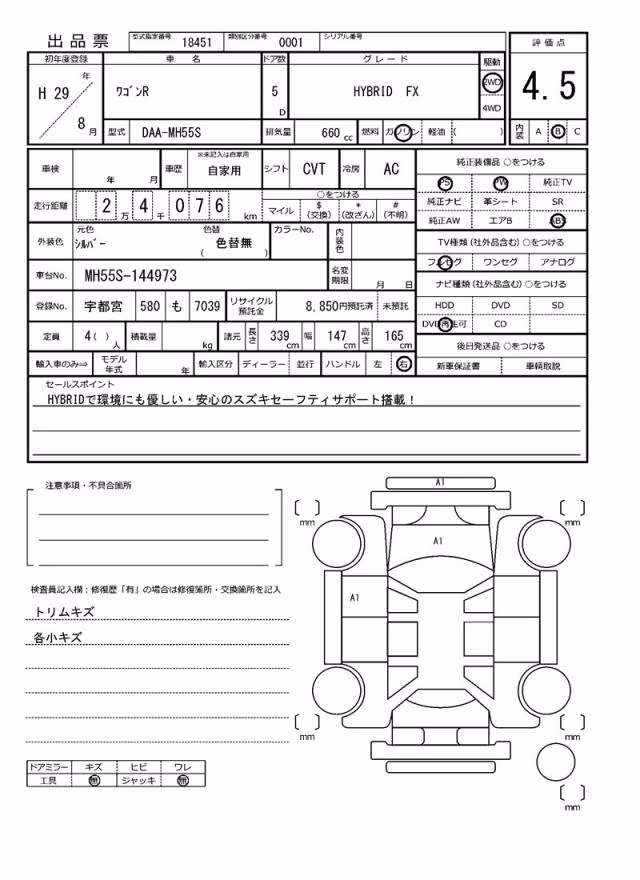 出品票
型式指定番号 18451 類別区分番号 0001 シリアル番号
評価点
4.5
初年度登録 車名 ドア数 グレード 駆動
H 29 年 8 月
ワゴンR 5 D HYBRID FX 2WD
4WD
型式 DAA-MH55S 排気量 660 cc 燃料 ガソリン 軽油 ( )
内装 A B C
車検 年 月 車歴 ※未記入は自家用 自家用 シフト CVT 冷房 AC
走行距離 2 万 4 千 0 7 6 km
○をつける
マイル $(交換) *(改ざん) #(不明)
外装色 元色 シルバー 色替 ( 色替無 ) カラーNo. 内装色
車台No. MH55S-144973 名変期限 月 日
登録No. 宇都宮 580 も 7039 リサイクル預託金 8,850円預託済 未預託
定員 4( )人 積載量 kg 諸元 長さ 339cm 幅 147cm 高さ 165cm
輸入車のみ⇒ モデル年式 年 輸入区分 ディーラー 並行 ハンドル 左 右
純正装備品 ○をつける
PS PW 純正TV
純正ナビ 革シート SR
純正AW エアB ABS
TV種類(社外品含む)○をつける
フルセグ ワンセグ アナログ
ナビ種類(社外品含む)○をつける
HDD DVD SD
DVD再生可 CD
後日発送品 ○をつける
新車保証書 車輌取説
セールスポイント
HYBRIDで環境にも優しい・安心のスズキセーフティサポート搭載!
注意事項・不具合箇所
検査員記入欄:修復歴「有」の場合は修復箇所・交換箇所を記入
トリムキズ
各小キズ
ドアミラー キズ ヒビ ワレ
工具 無 ジャッキ 無
A1
mm mm
A1
A1
mm mm
mm